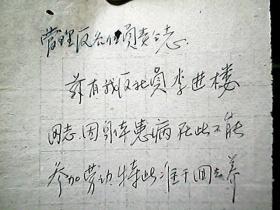 管理区各位负责同志：
兹有我区社员李进楼
同志，因身患病在此不能
参加劳动特此准予回去养